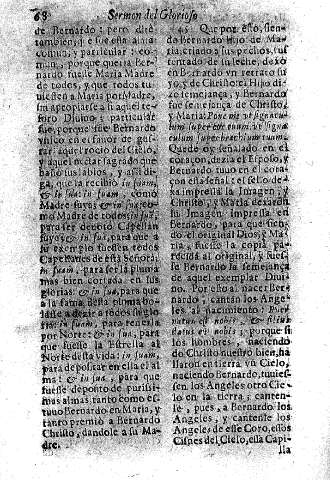 68 Sermon del Glorioso
de Bernardo; pero dize
tambien; & in sua
comun, y particular
man, porque que ria Ber-
nardo fuesse Maria Madre
de todos, y que todos tu-
viessen a Maria por Madre,
sin apropiarse a si aquel te-
soro Divino; y particular
fue, porque fue Bernardo
vnico en el favor de gus-
tar, aquel rocio del Cielo,
y aquel nectar sagrado que
baño sus labios, y assi di-
ga, que la recibiò in suam,
& in sua: in suam, como
Madre suya & in sua, co-
mo Madre de todos in suā,
para ser devoto Capellan
suyo & in sua, para que a
su exemplo fuessen todos
Capellanes de esta Señora;
in suam, para ser la pluma
mas bien cortada en sus
glorias: & in sua, para que
a la fama desta pluma bo-
lasse a dezir a todos su glo-
ria: in suam, para tenerla
por Norte: & in sua, para
que fuesse la Estrella al
Norte desta vida: in suam,
para depositar en ella el al-
ma: & in sua, para que
fuesse deposito de purissi-
mas almas tanto como es-
tuvo Bernardo en Maria, y
tanto premiò a Bernardo
Christo, dandole a su Ma-
dre.
45 Que por esso, sien-
do Bernardo hijo de Ma-
ria, criado a sus pechos, sus-
tentado de su leche, dexò
en Bernardo vn retrato su-
yo, y de Christo: Hijo di-
xo semejança, y Bernardo
fue semejança de Christo,
y Maria: Pone me vt signacu-
lum super cor tuum, vt signa-
culum super brachium tuum.
Quede oy señalado en el
coraçon, dezia el Esposo, y
Bernardo tuvo en el cora-
çon essa señal: el sello de-
xa impressa la Imagen, y
Christo, y Maria dexaron
su Imagen impressa en
Bernardo, para que sien-
do el original Dios, y Ma-
ria, fuesse la copia pare-
cida al original, y fues-
se Bernardo la semejança
de aquel exemplar Divi-
no. Por esso al nacer Ber-
nardo, cantan los Ange-
les al nacimiento: Puer
natus est nobis, & filius
datus est nobis; porque si
los hombres, naciendo
de Christo nuestro bien, ha-
llaron en tierra vn Cielo,
naciendo Bernardo, tuvies-
sen los Angeles otro Cie-
lo en la tierra; canten-
le, pues, a Bernardo los
Angeles, y cantenle los
Angeles de esse Coro, essos
Cisnes del Cielo, essa Capi-
lla